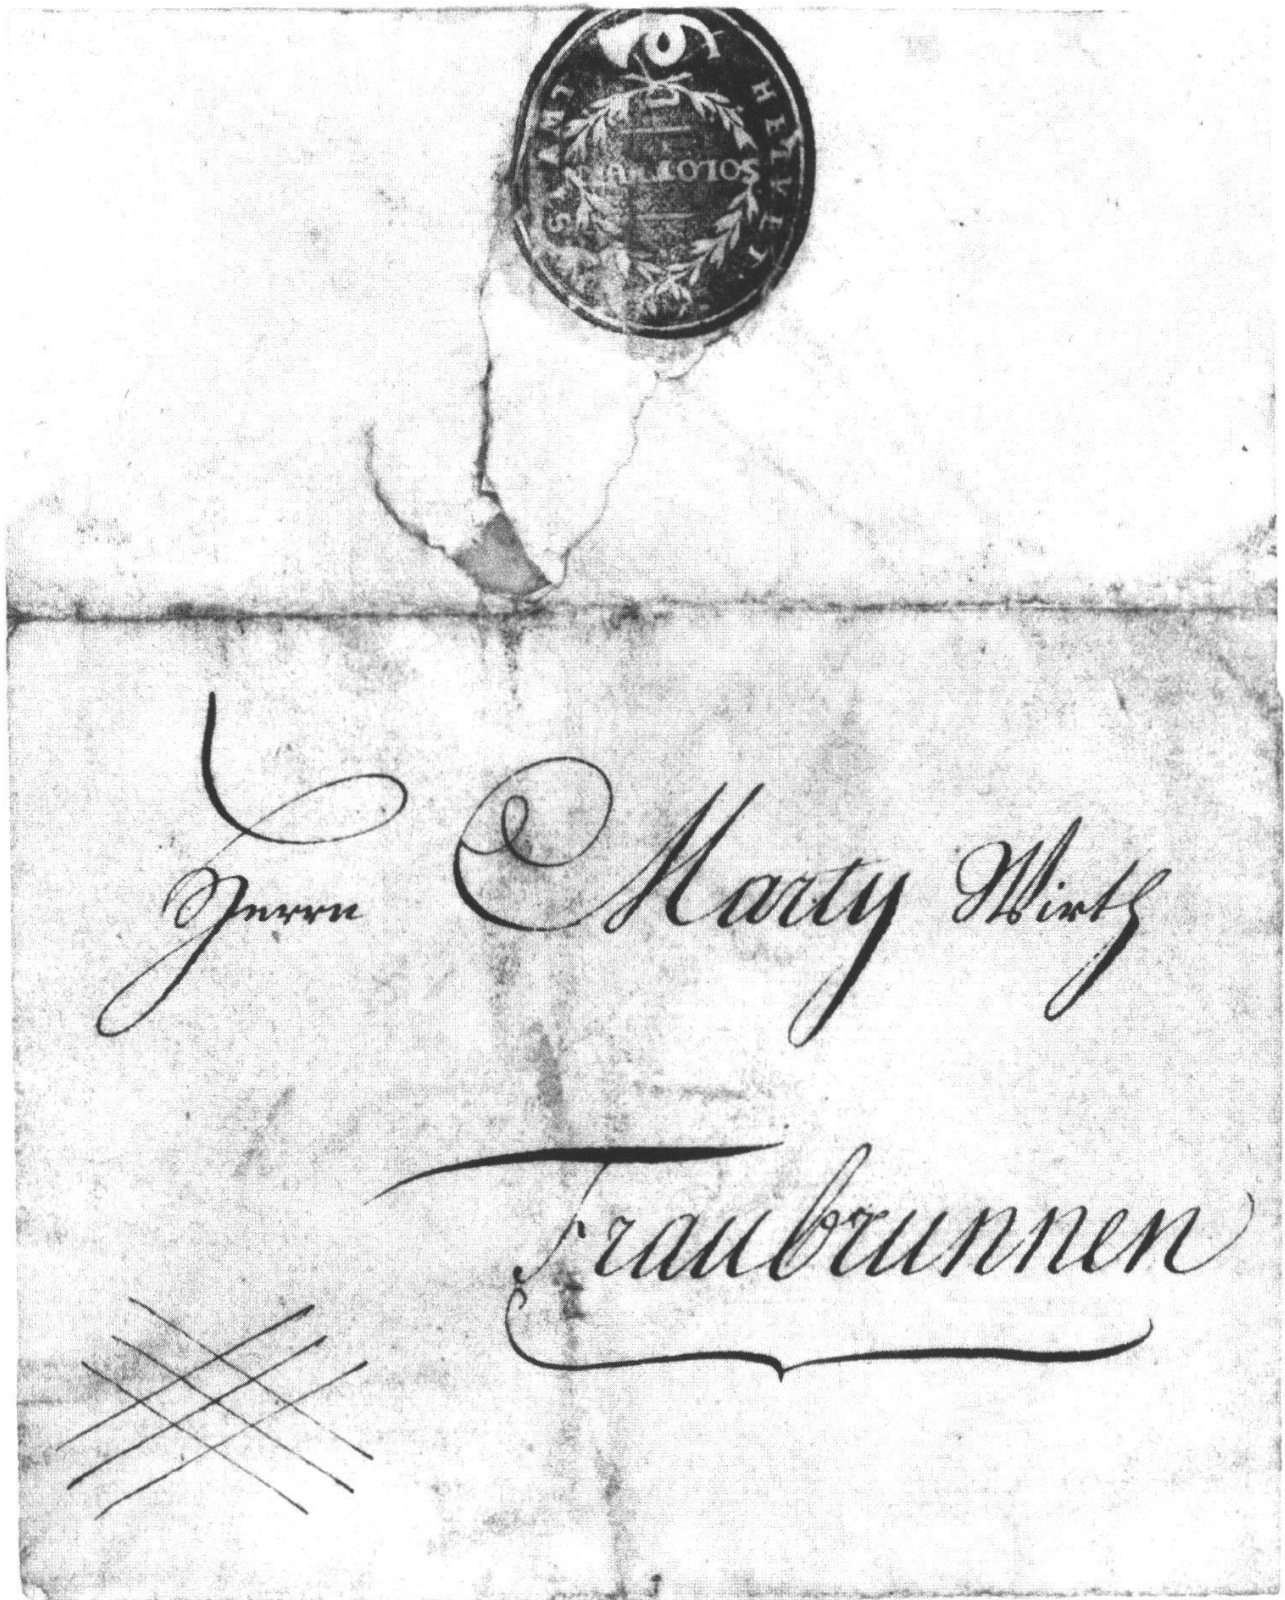 HELVET
SOLOTHURN
Herrn Marty Wirth
Fraubrunnen